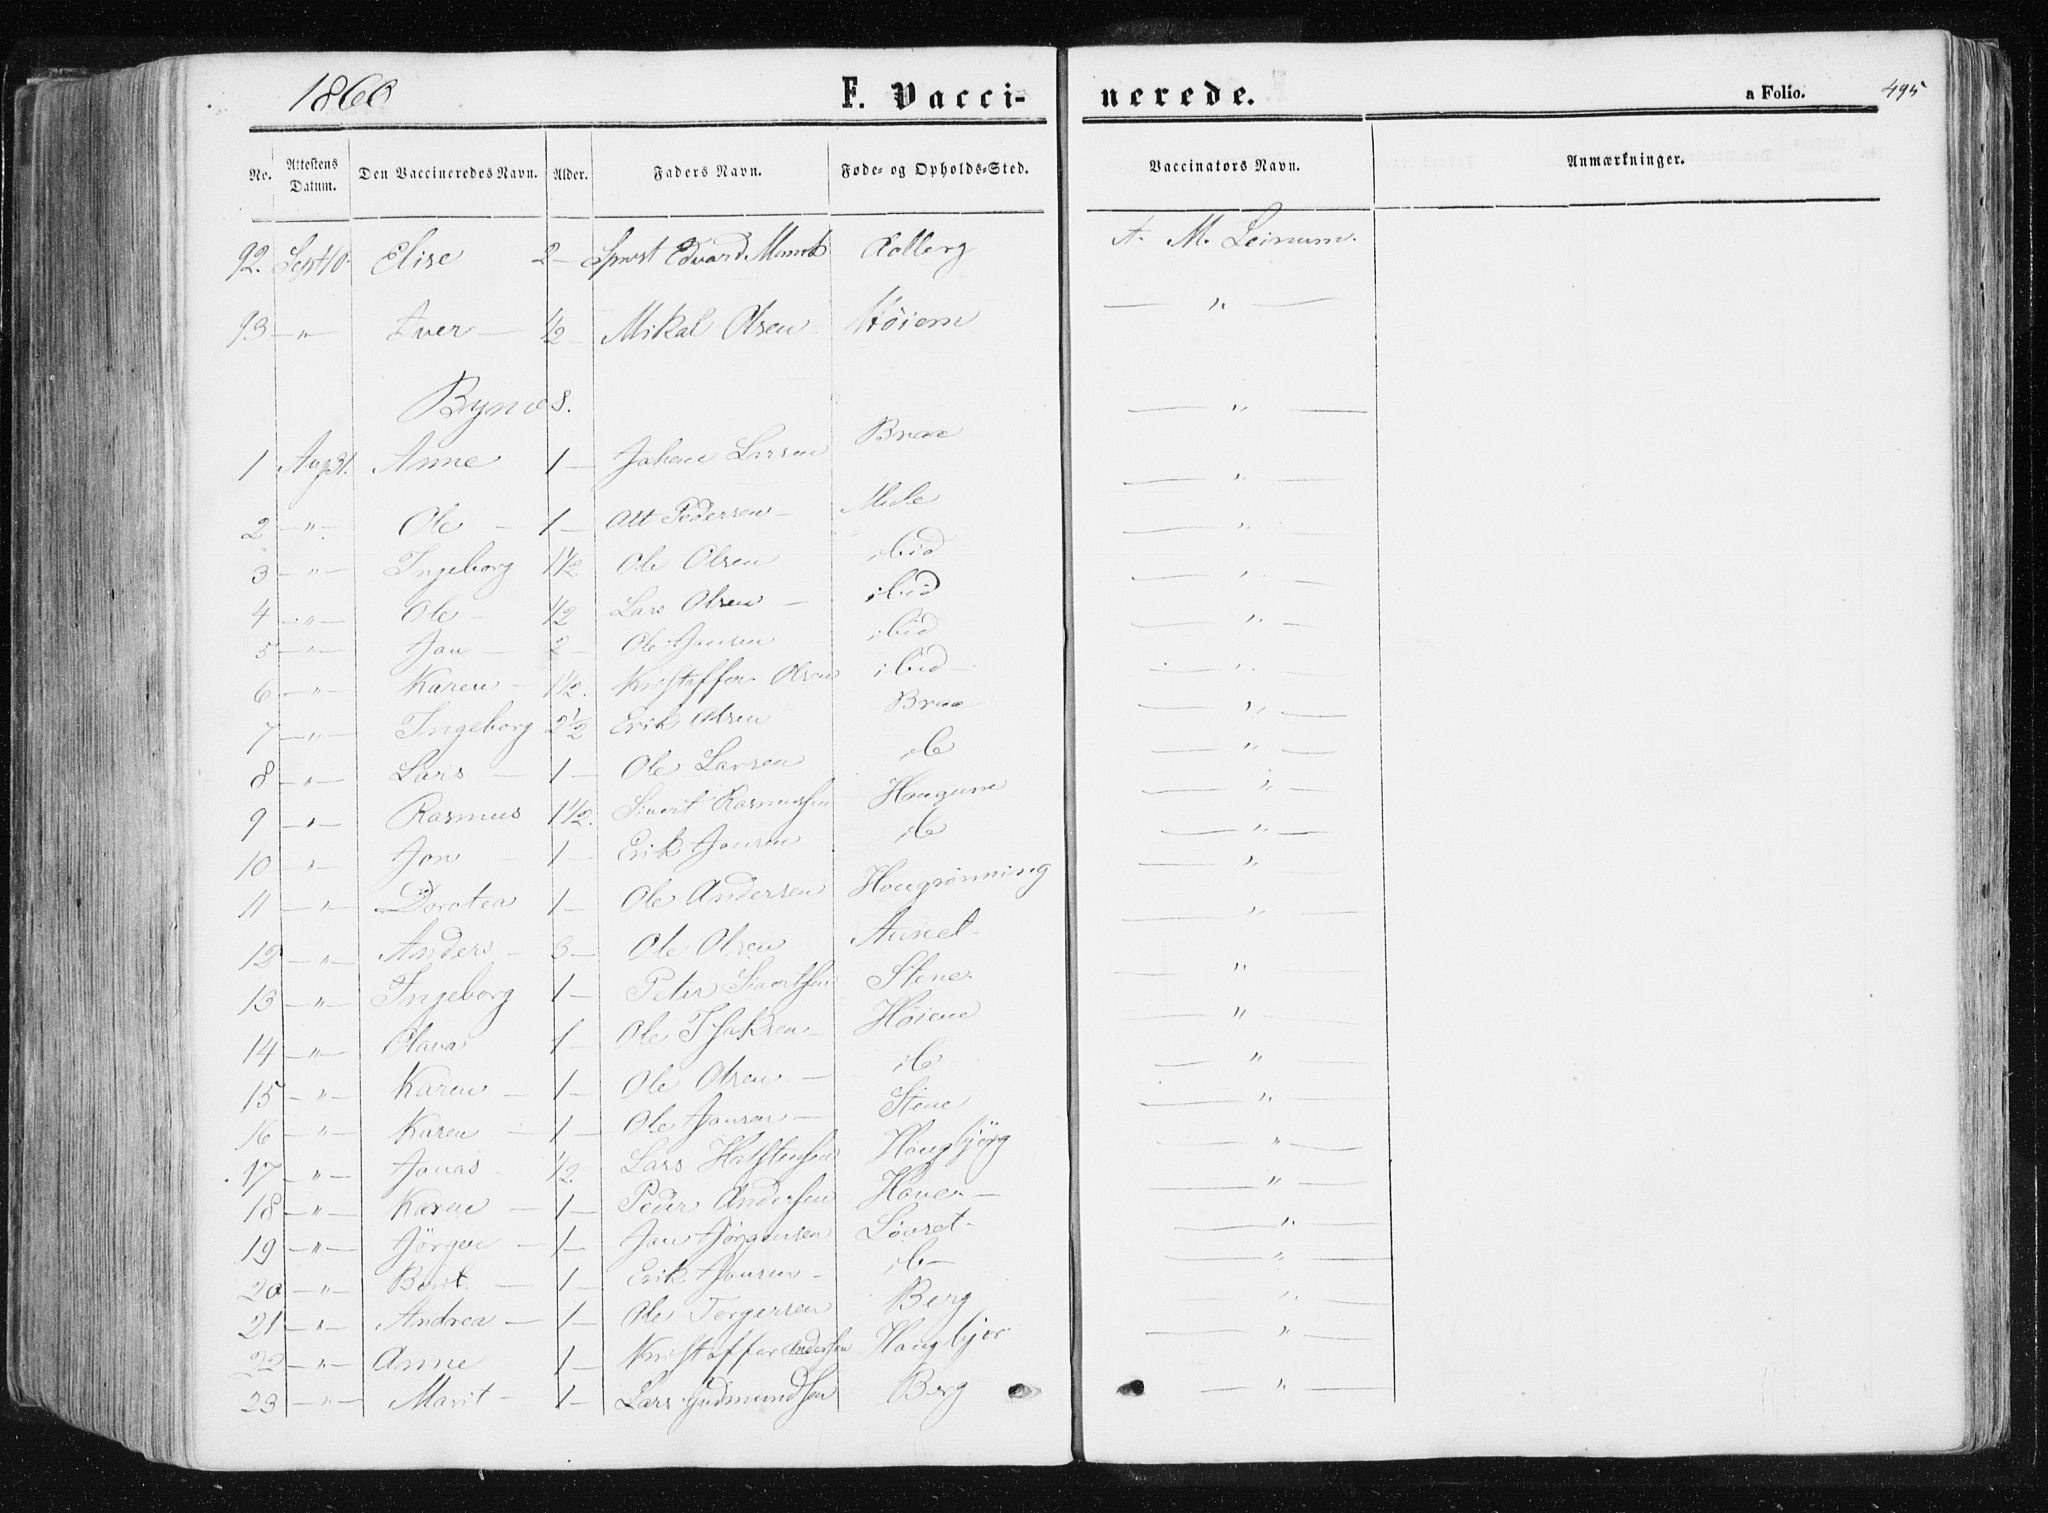 1860 F. Vacci- nerede. a Folio. 495
No. Attestens Datum. Den Vaccineredes Navn. Alder. Faders Navn. Føde- og Opholds-Sted. Vaccinators Navn. Anmærkninger.
92. Sept 10 Elise 2 — Edvard Aalberg A. M. Leinum.
93 — " — Iver — 1/2 — Mikal Olsen Høiem — " —
Bynes. — " —
1 Aug 31. Anne 1 — Johan Larsen Braa — " —
2 — " — Ole — 1 — Att Pedersen — Mule — " —
3 — " — Ingeborg 1 1/2 Ole Olsen ibid — " —
4 — " — Ole — 1/2 Lars Olsen — ibid — " —
5 — " — Jon — 2 — Ole Jonsen ibid — " —
6 — " — Karen — 1 1/2. Kristoffer Olsen ibid — — " —
7 — " — Ingeborg 2 1/2 Erik Olsen Braa — " —
8 — " — Lars — 1 — Ole Larsen ib — " —
9 — " — Rasmus 1 1/2. Sivert Rasmussen Haugene — " —
10 — " — Jon — 1 — Erik Jonsen ib — " —
11 — " — Dorotea 1 — Ole Andersen Haugrønning — " —
12 — " — Anders — 3 — Ole Olsen Aunet — " —
13 — " — Ingeborg 1 — Peter Sivertsen Stene — " —
14 — " — Olava 1 — Ole Isaksen — Høiene — " —
15 — " — Karen — 1 — Ole Olsen — ib — " —
16 — " — Karen — 1 — Ole Jonsen — Stene — " —
17 — " — Jonas 1/2 Lars Halstensen Haugbjørg — " —
18 — " — Karen — 1 — Peter Andersen Hove — — " —
19 — " — Jørgen — 1 — Jon Jørgensen Løvset — " —
20 — " — Berit — 1 — Erik Jonsen — ib — — " —
21 — " — Andrea — 1 — Ole Torgersen Berg — " —
22 — " — Anne 1 — Kristoffer Andersen Haugbjør — " —
23 — " — Marit — 1 — Lars Gudmundsen Berg — " —